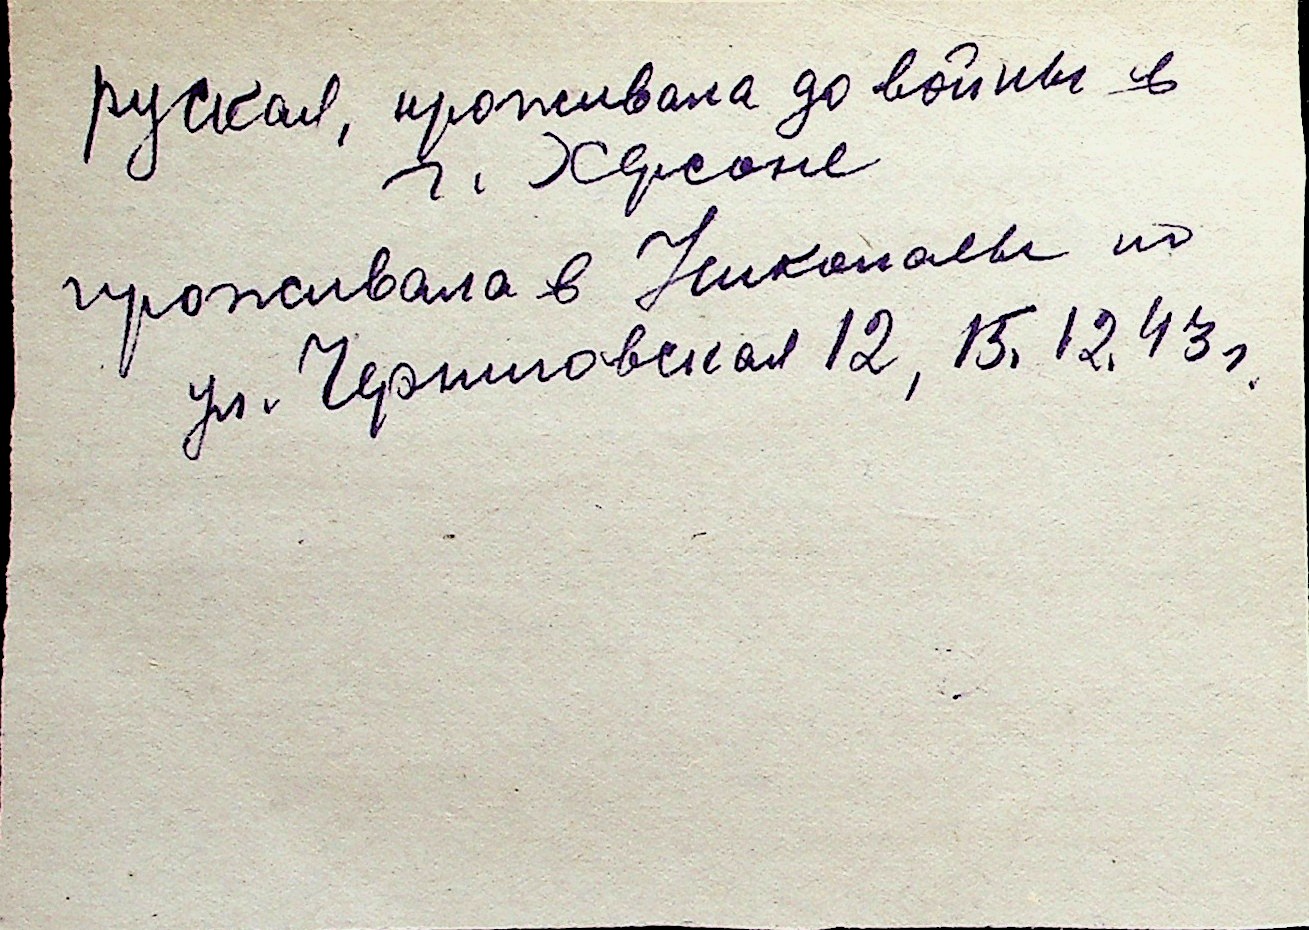 руская, проживала до войны в
г. Херсоне
проживала в Николаевы по
ул. Черниговская 12, 15.12.43 г.